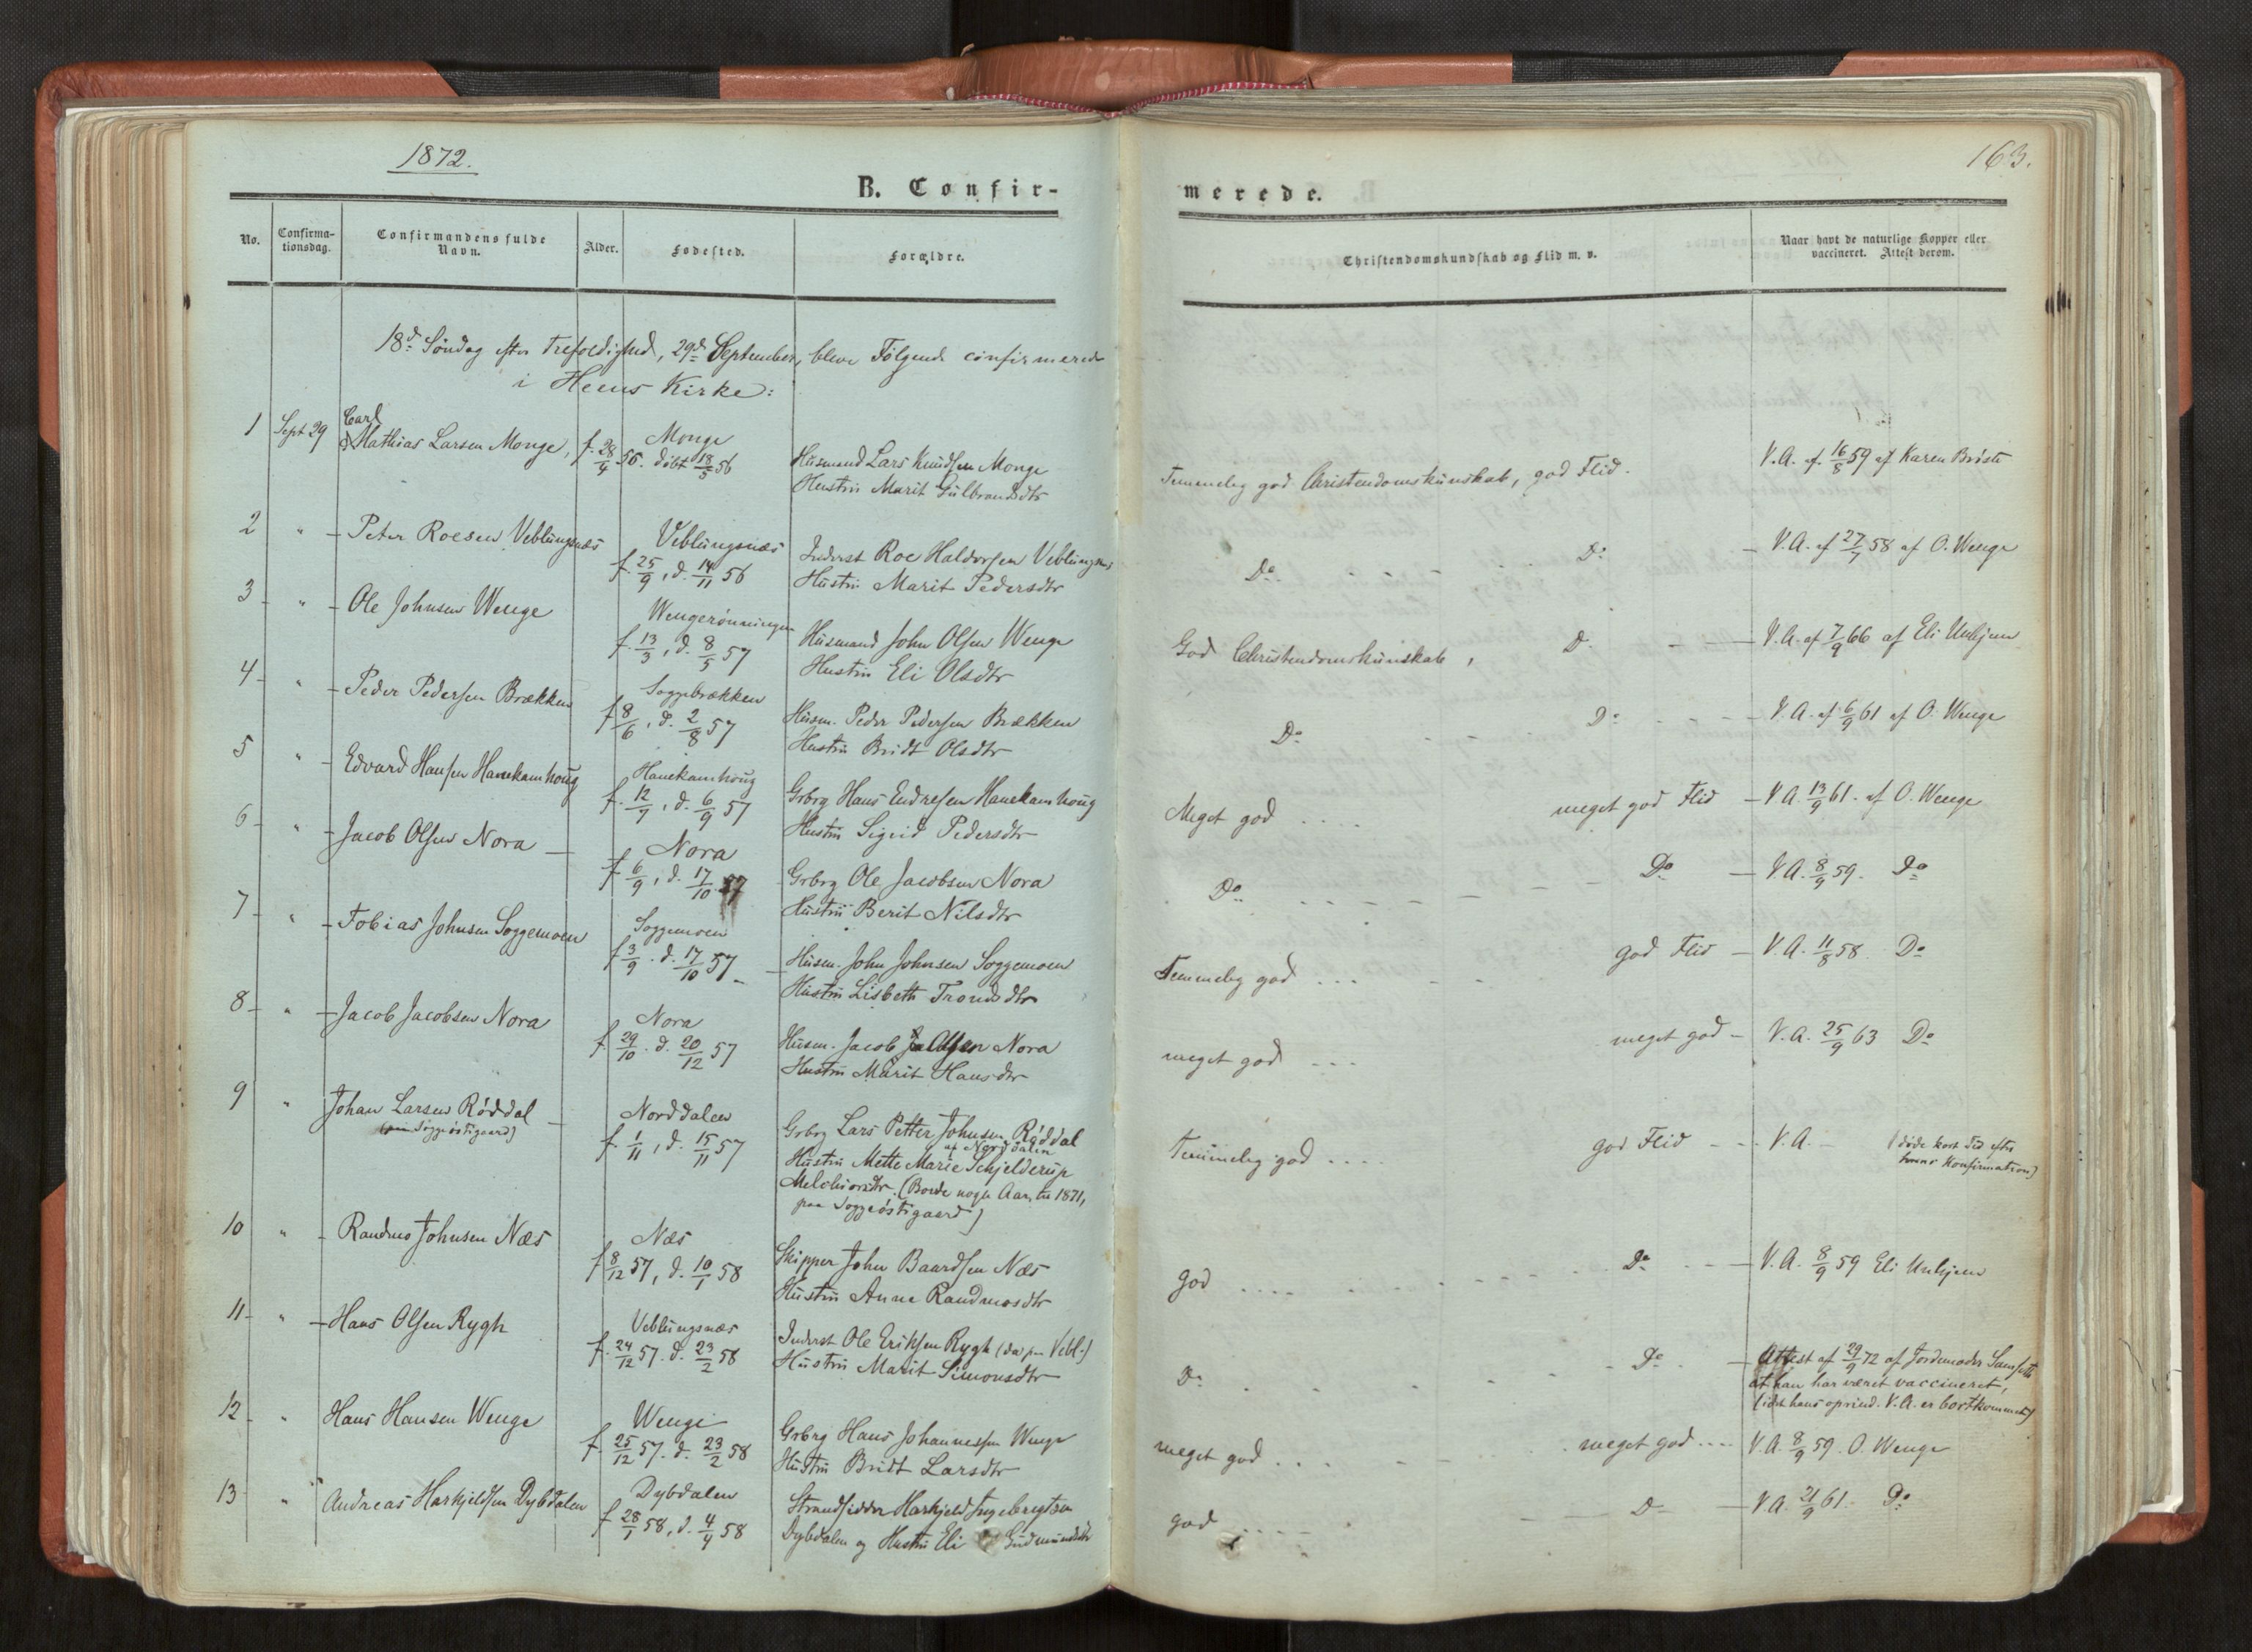 1872.
163.
B. Confir-
merede.
No.
Confirma-
tionsdag.
Confirmandens fulde
Navn.
Alder.
Fødested.
Forældre.
Christendomskundskab og Flid m. v.
Naar havt de naturlige Kopper eller
vaccineret. Attest derom.
18d. Søndag efter Trefoldighed, 29d. September, bleve Følgende confirmerede
i Heens Kirke:
1 Sept 29 Carl
Mathias Larsen Monge, f. 28/4 56. Monge døbt 18/5 56
Husmand Lars Knudsen Monge
Hustru Marit Gulbrandsdtr
Temmelig god Christendomskunskab, god Flid.
V.A. af 16/8 59 af Karen Brøste
2 " - Peter Roesen Veblungsnæs
Veblungsnæs
f. 25/9, d. 14/11 56
Inderst Roe Haldorsen Veblungsnæs
Hustru Marit Pedersdtr
Do - - - Do
- V.A. af 27/7 58 af O. Wenge
3 - " - Ole Johnsen Wenge
Wengerønningen
f. 13/3, d. 8/5 57
Husmand John Olsen Wenge
Hustru Eli Olsdtr
God Christendomskunskab, Do - -
V.A. af 7/9 66 af Eli Unhjem
4 - " - Peder Pedersen Brækken
Soggebrækken
f 8/6, d. 2/8 57
Husm. Peder Pedersen Brækken
Hustru Bridt Olsdtr
Do - - - Do - - -
V.A. af 6/9 61 af O. Wenge
5 " - Edvard Hansen Hanekamhoug
Hanekamhoug
f. 12/7, d. 6/9 57
Grbrg Hans Endresen Hanekamhoug
Hustru Sigrid Pedersdtr
Meget god .... meget god Flid
- V.A. 13/9 61. af O. Wenge
6 - " - Jacob Olsen Nora -
Nora
f 6/9, d. 17/10 57
Grbrg Ole Jacobsen Nora
Hustru Berit Nilsdtr
Do - - - Do
- V.A. 8/9 59. Do
7 - " - Tobias Johnsen Soggemoen
Soggemoen
f 3/9. d. 17/10 57 -
Husm. John Johnsen Soggemoen
Hustru Lisbeth Trondsdtr
Temmelig god ... god Flid
- V.A. 11/8 58. Do
8 - " - Jacob Jacobsen Nora
Nora
f. 29/10. d. 20/12 57
Husm. Jacob Olsen Nora
Hustru Marit Hansdtr
meget god - - - meget god -
V.A. 25/9 63 Do
9 " Johan Larsen Røddal -
(paa Soggeøstigaard)
Norddalen
f. 1/11, d. 15/11 57
Grbrg Lars Petter Johnsen Røddal
af Norddalen
Hustru Mette Marie Schjelderup
Melchiorsdtr. (Boede nogle Aar, til 1871,
paa Soggeøstigaard)
Temmelig god .... god Flid - -
V.A. - (døde kort Tid efter
hans Konfirmation)
10 " - Randmo Johnsen Næs
Næs
f 8/12 57, d. 10/1 58
Skipper John Baardsen Næs
Hustru Anne Randmosdtr
god .... Do - -
V.A. 8/9 59 Eli Unhjem
11 - " - Hans Olsen Rygh
Veblungsnæs
f. 24/12 57. d. 23/2 58
Inderst Ole Eriksen Rygh (da paa Vebl.)
Hustru Marit Simonsdtr
Do - - - Do -
Attest af 29/9 72 af Jordemoder Samset
at han har været vaccineret,
(idet hans oprind. V.A. er bortkommet)
12 - " Hans Hansen Wenge
Wenge
f. 25/12 57. d. 23/2 58
Grbrg Hans Johannessen Wenge
Hustru Bridt Larsdtr
meget god ... meget god ....
V.A. 8/9 59. O. Wenge
13 " Andreas Harkjeldsen Dybdalen
Dybdalen
f 28/1 58, d. 4/4 58
Strandsidder Harkjeld Ingebregtsen
Dybdalen og Hustru Eli Gudmundsdtr
god .... Do
- V.A. 21/9 61. Do